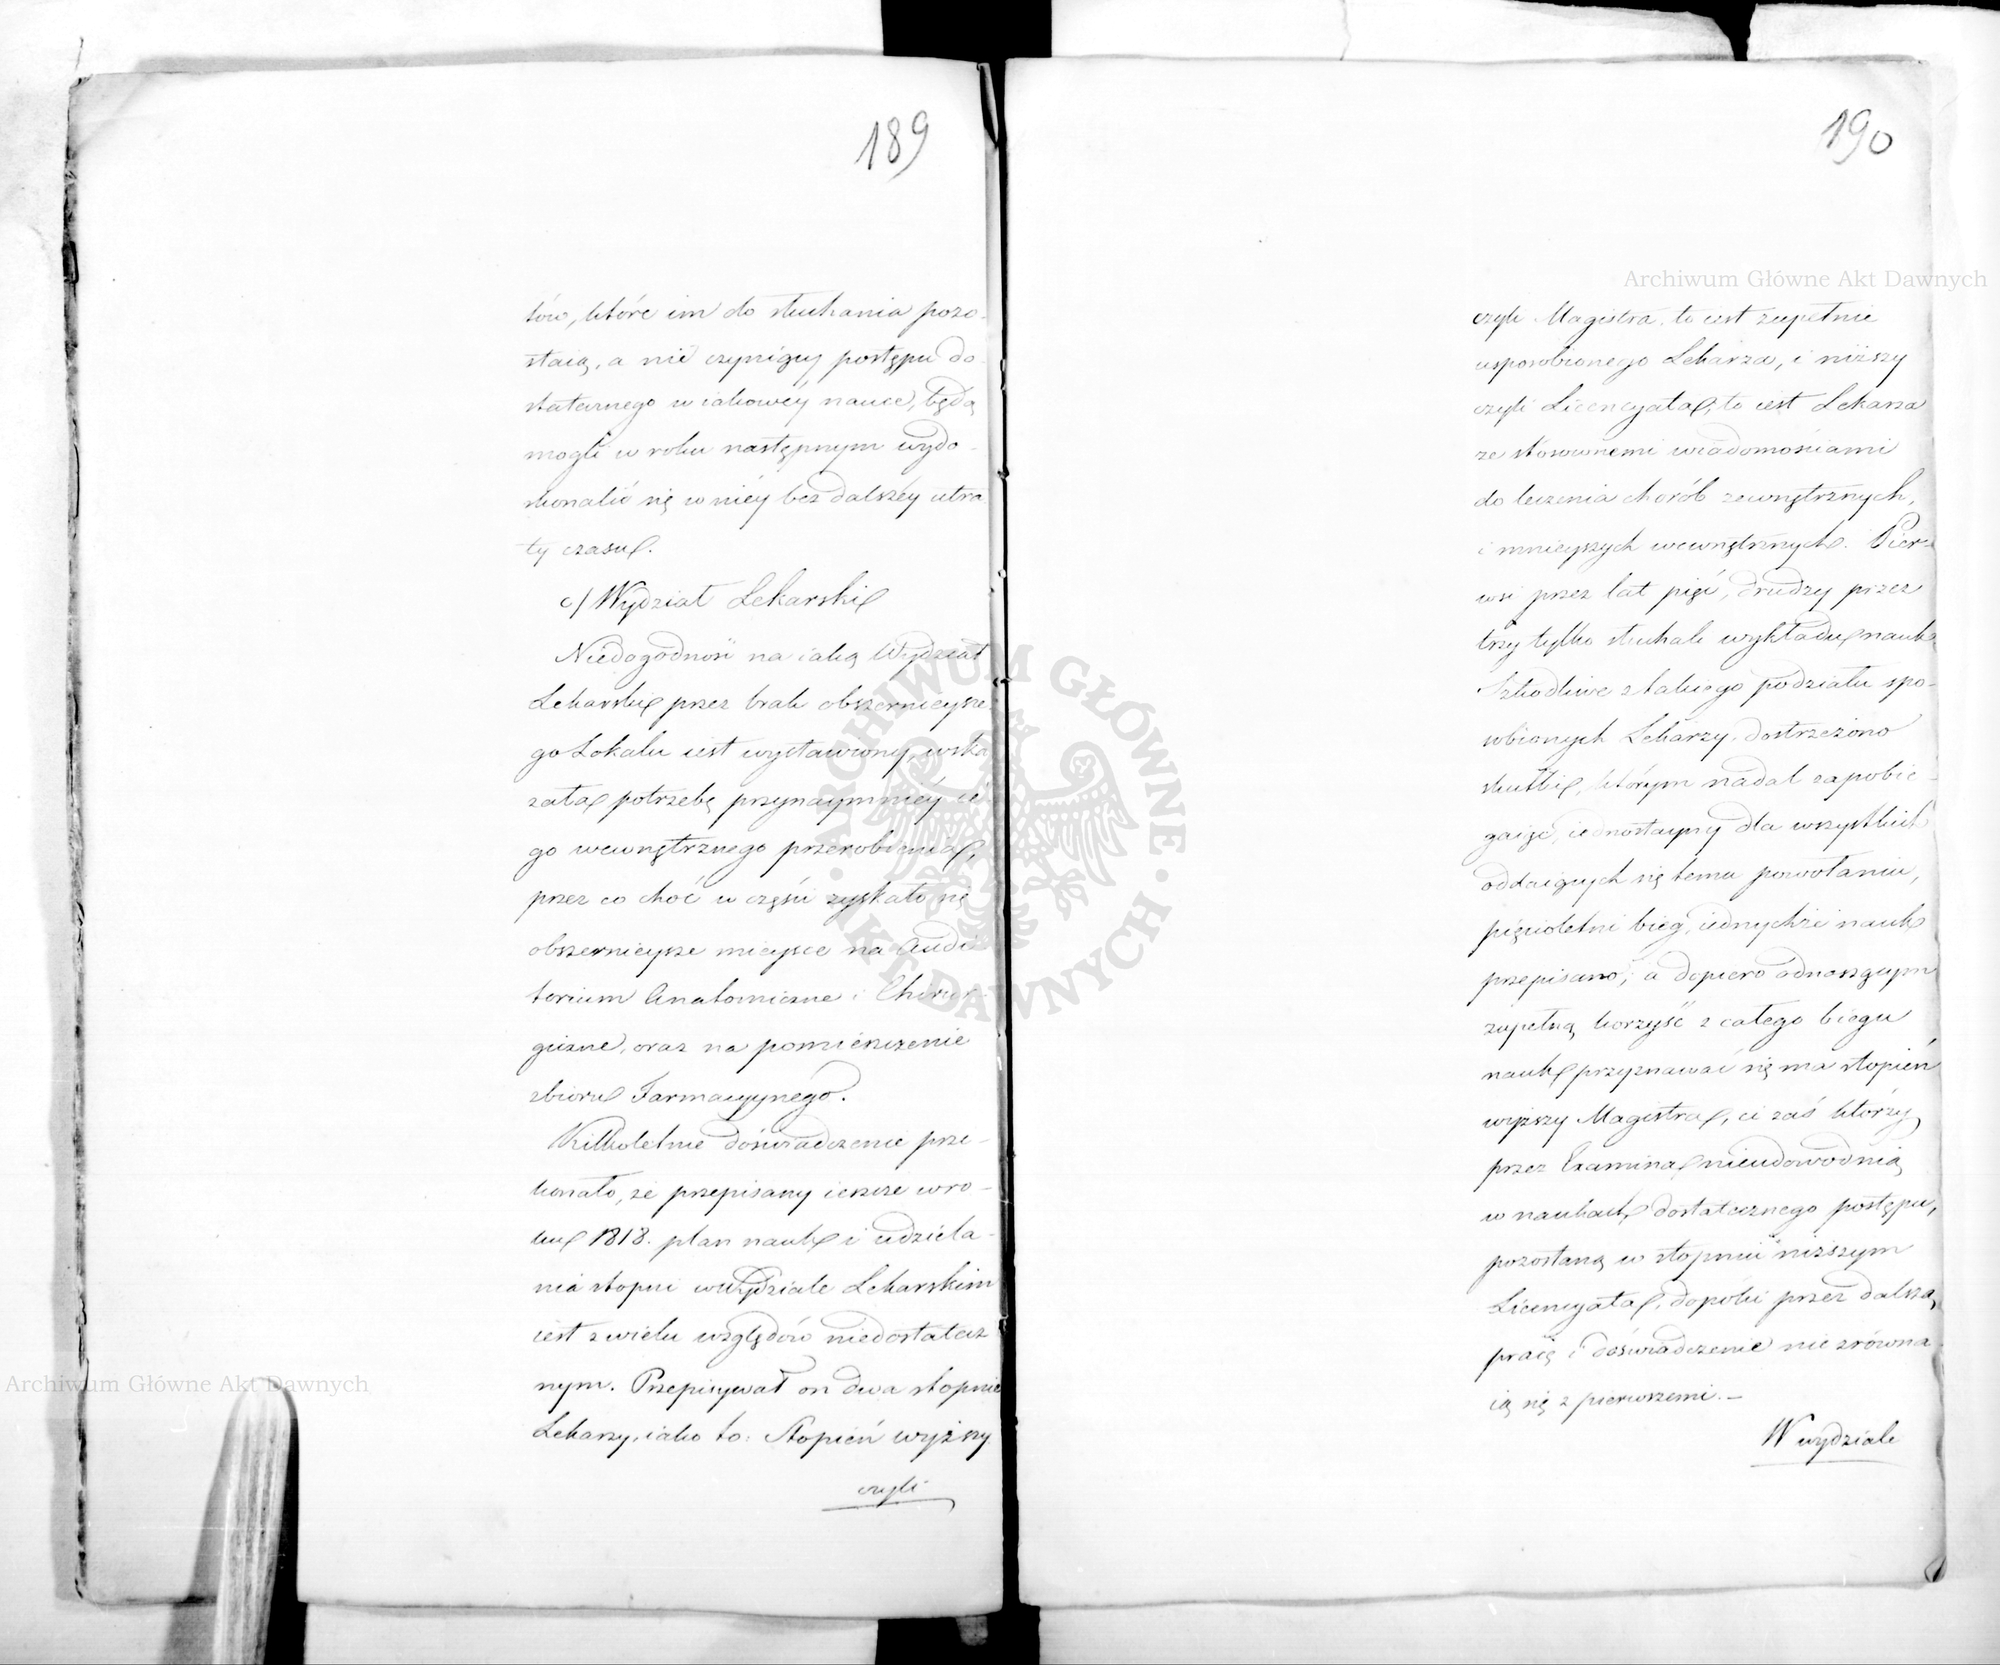 189
tów, które im do słuchania pozo-
staią, a nie czyniący postępu do-
statecznego w iakowéy nauce, będą
mogli w roku następnym wydo-
skonalić się w niéy bez dalszéy utra
ty czasu.
c/ Wydział Lekarski
Niedogodność na iaką Wydział
Lekarski przez brak obszernieysze
go Lokalu iest wystawiony, wska
zała potrzebę przynaymniéy ie
go wewnętrznego przerobienia,
przez co choć w części zyskało się
obszernieysze mieysce na Audi
torium Anatomiczne i Chirur-
giczne, oraz na pomieszczenie
zbioru Farmacyynégo.
Killkoletnie doświadczenie prze-
konało, że przepisany ieszcze w ro-
ku 1818. plan nauk i udziela-
nia stopni w Wydziale Lekarskim
iest z wielu względów niedostatecz
nym. Przepisywał on dwa stopnie
Lekarzy, iako to: Stopień wyższy
czyli
190
czyli Magistra, to iest zupełnie
usposobionego Lekarza, i niższy
czyli Licencyata, to iest Lekarza
ze stosownemi wiadomościami
do leczenia chorób zewnętrznych,
i mnieyszych wewnętrznych. Pier-
wsi przez lat pięć, drudzy przez
trzy tylko słuchali wykładu nauk
Szkodliwe z takiego podziału spo-
sobionych Lekarzy dostrzeżono
skutki, którym nadal zapobie-
gaiąc, iednostayny dla wszystkich
oddaiących się temu powołaniu,
pięcioletni bieg iednychże nauk
przepisano; a dopiero odnoszącym
zupełną korzyść z całego biegu
nauk przyznawać się ma stopień
wyższy Magistra, ci zaś którzy
przez Examina nieudowodnią
w naukach dostatecznego postępu,
pozostaną w stopniu niższym
Licencyata, dopóki przez dalszą
pracę i doświadczenie nie zrówna
ią się z pierwszemi. —
W wydziale
Archiwum Główne Akt Dawnych
Archiwum Główne Akt Dawnych
ARCHIWUM GŁÓWNE · AKT DAWNYCH ·